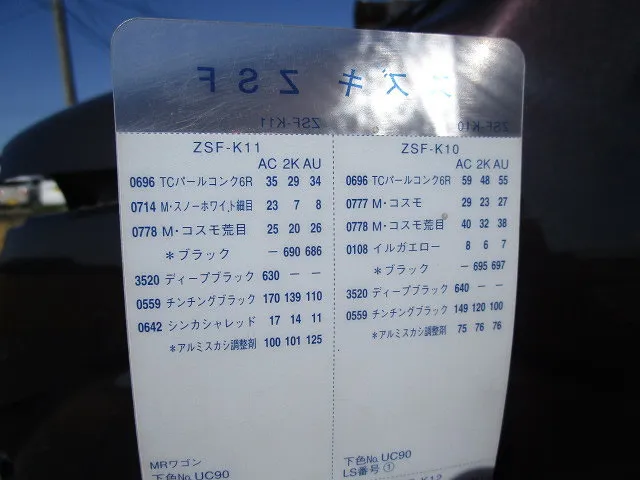 スズキ ZSF
ZSF-K11
ZSF-K10
ZSF-K11
AC 2K AU
0696 TCパールコンク6R 35 29 34
0714 M・スノーホワイト細目 23 7 8
0778 M・コスモ荒目 25 20 26
*ブラック － 690 686
3520 ディープブラック 630 － －
0559 チンチングブラック 170 139 110
0642 シンカシャレッド 17 14 11
*アルミスカシ調整剤 100 101 125
MRワゴン
下色No.UC90
ZSF-K10
AC 2K AU
0696 TCパールコンク6R 59 48 55
0777 M・コスモ 29 23 27
0778 M・コスモ荒目 40 32 38
0108 イルガエロー 8 6 7
*ブラック － 695 697
3520 ディープブラック 640 － －
0559 チンチングブラック 149 120 100
*アルミスカシ調整剤 75 76 76
下色No.UC90
LS番号①